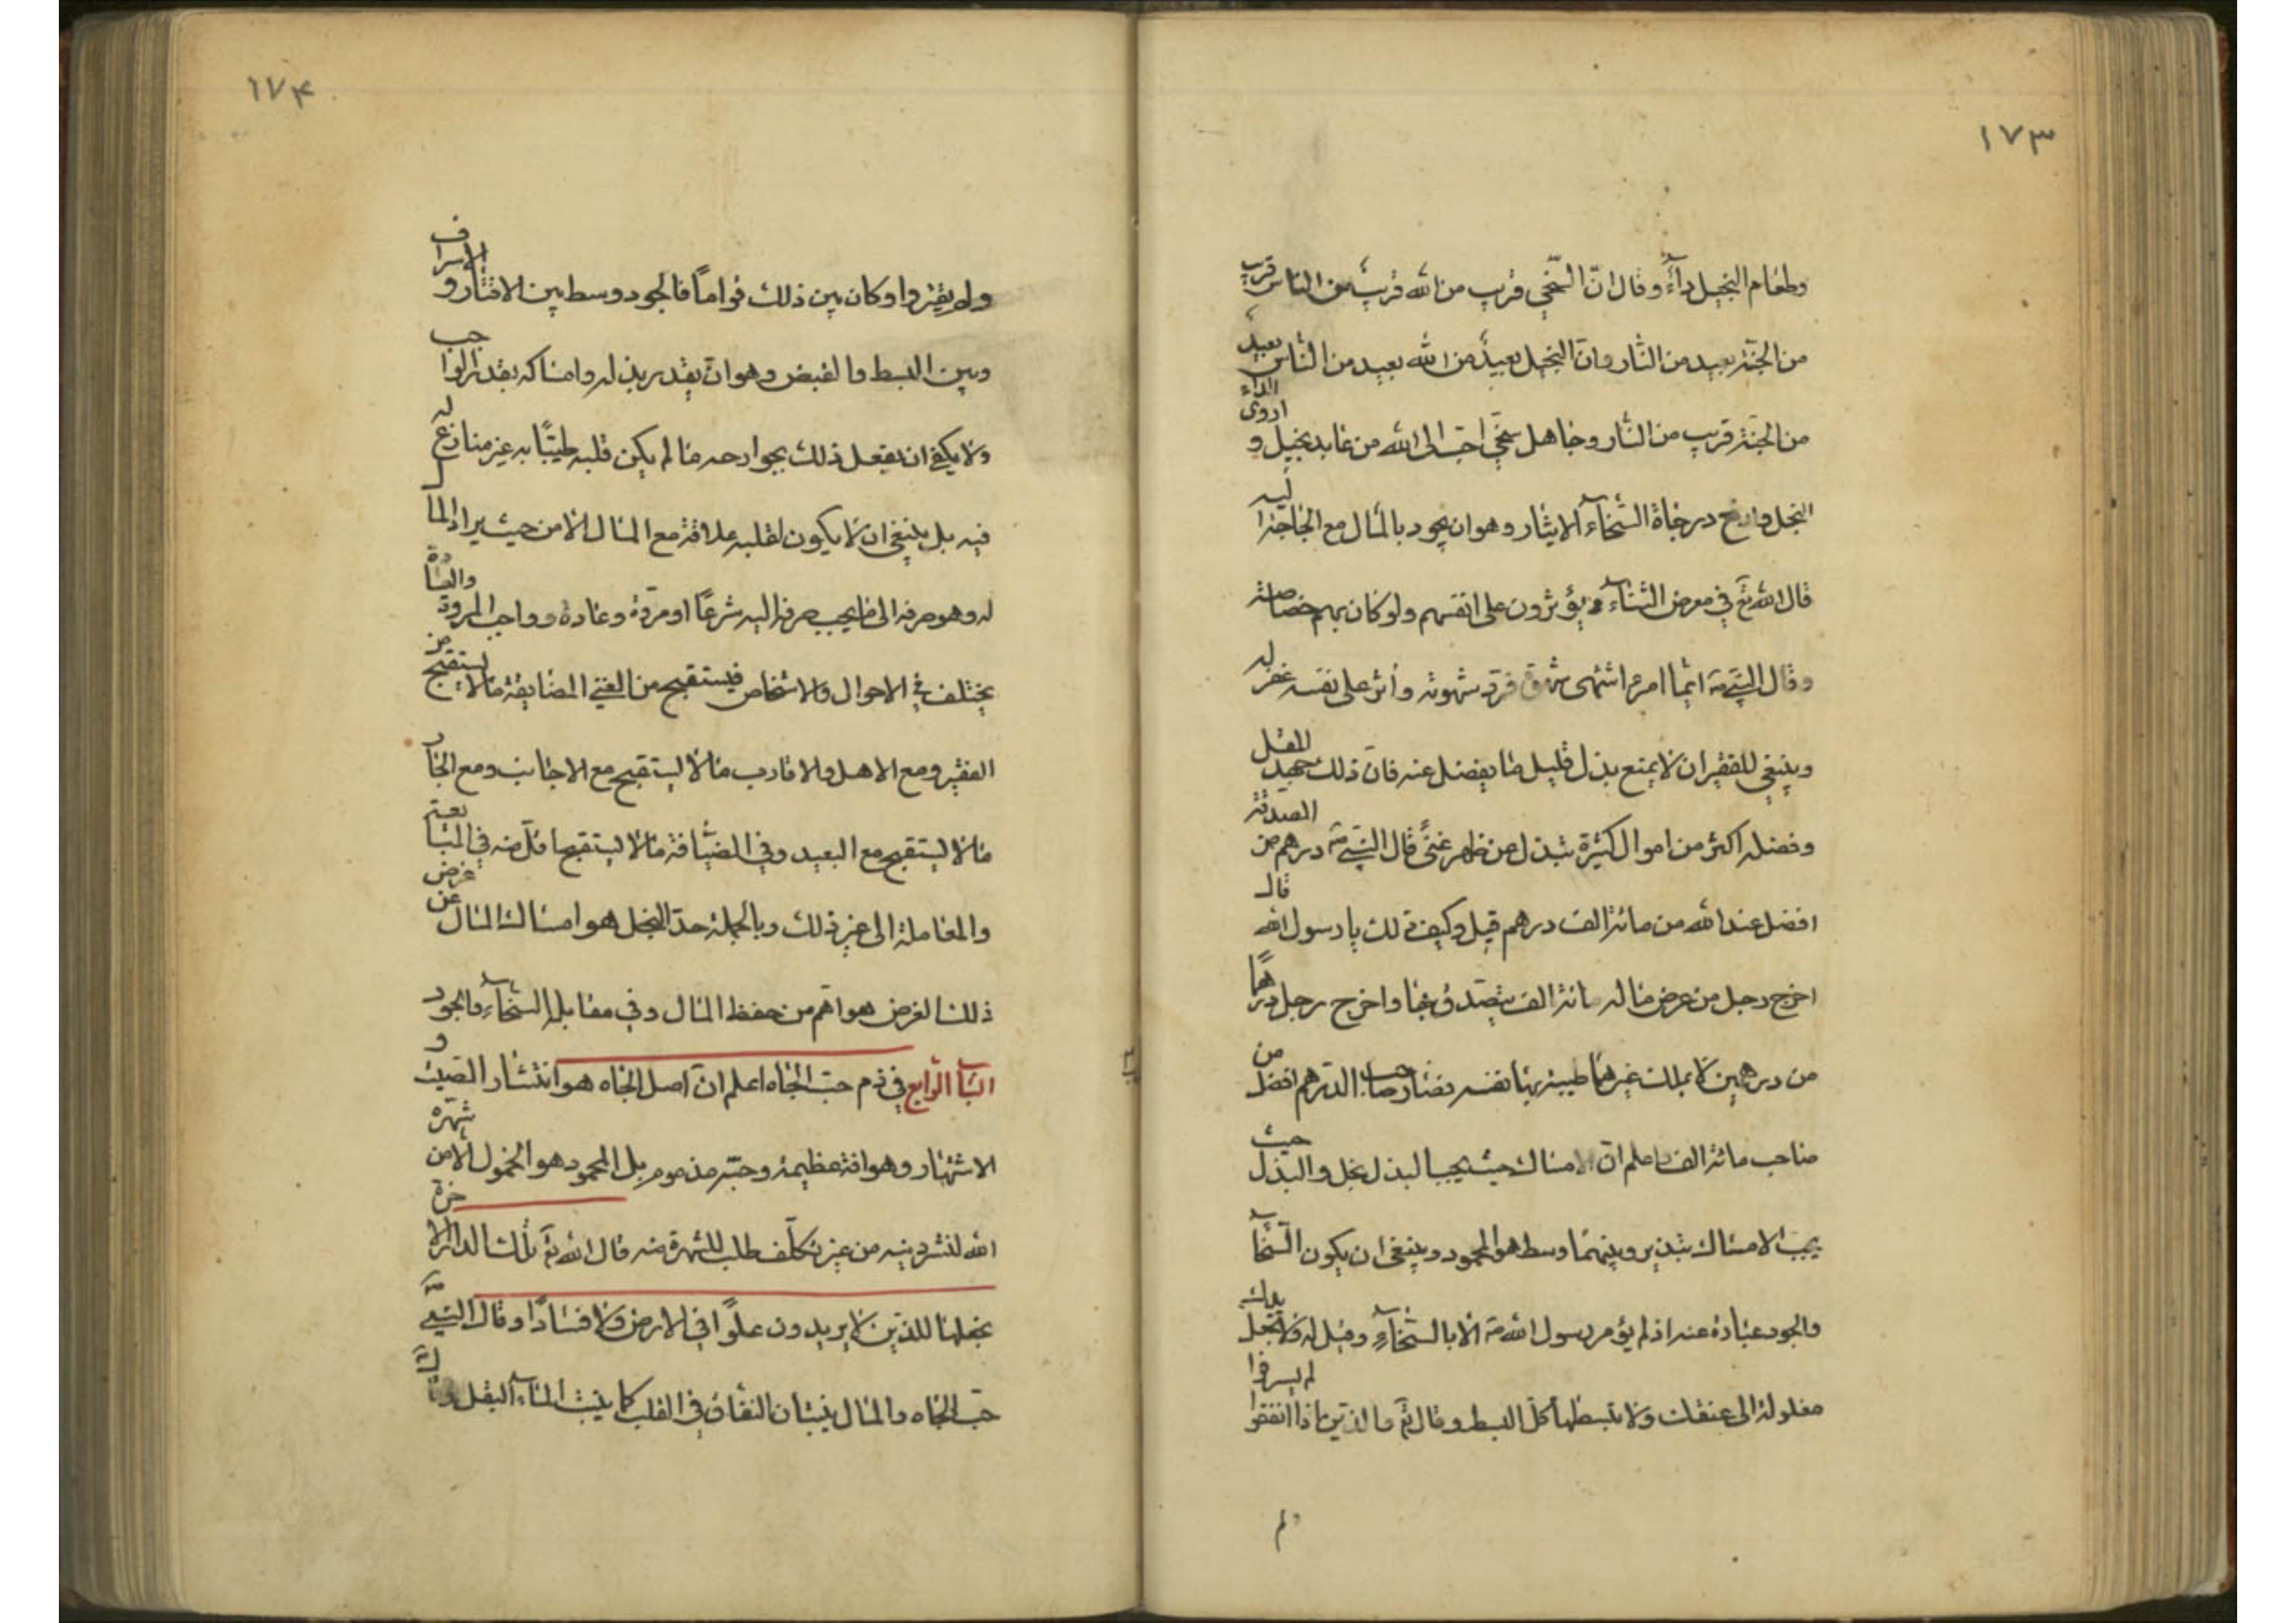 ١٧٣
وطعام البخيل داء وقال انّ السّخي قريب من الله قريب من الناس قريب
من الجنّة بعيد من النار وانّ البخيل بعيد من الله بعيد من الناس بعيد
من الجنة قريب من النار وجاهل سخّي احبّ الى الله من عابد بخيل و ادوى الداء
البخل وارفع درجات السّخاء الايثار وهو ان يجود بالمال مع الحاجة اليه
قال الله تع في معرض الثناء ويؤثرون على انفسهم ولو كان بهم خصاصة
وقال النبي ص ايّما امرء اشتهى شهوة فردّ شهوته وآثر على نفسه غفر له
وينبغي للفقير ان لا يمنع بذل قليل ما يفضل عنه فانّ ذلك جهد المقل
وفضله اكثر من اموال كثيرة تبذل عن ظهر غنىً قال النبي ص درهم من الصدقة
افضل عند الله من مائة الف درهم قيل وكيف ذلك يا رسول الله قال
اخرج رجل من عرض ماله مائة الف يتصدق بها واخرج رجل درهمًا
من درهمين لا يملك غيرهما طيبة بها نفسه فصار صاحب الدّرهم افضل من
صاحب مائة الف واعلم انّ الامساك حيث يجب البذل بخل والبذل حيث
يجب الامساك تبذير وبينهما وسط هو المحمود وينبغي ان يكون السّخاء
والجود عبارة عنه اذ لم يؤمر رسول الله ص الا بالسّخاء وقيل له ولا تجعل يدك
مغلولة الى عنقك ولا تبسطها كلّ البسط وقال تع والذين اذا انفقوا لم يسرفوا
ولم
١٧۴
ولم يقتروا وكان بين ذلك قواماً فالجود وسط بين الاقتار و الاسراف
وبين البسط والقبض وهو ان يقدر بذله وامساكه بقدر الواجب
ولا يكفي ان يفعل ذلك بجوارحه ما لم يكن قلبه طيّبًا به غير منازع له
فيه بل ينبغي ان لا يكون لقلبه علاقة مع المال الا من حيث يراد المال
له وهو صرفه الى ما يجب صرفه اليه شرعًا او مروّة وعادة وواجب المروة والعادة
يختلف في الاحوال والاشخاص فيستقبح من الغني المضايقة ما لا يستقبح من
الفقير ومع الاهل والاقارب ما لا يستقبح مع الاجانب ومع الجار
ما لا يستقبح مع البعيد وفي الضيافة ما لا يستقبح اقلّ منه في المبايعة
والمعاملة الى غير ذلك وبالجملة حدّ البخل هو امساك المال عن غرض
ذلك الغرض هو اهم من حفظ المال وفي مقابله السّخاء والجود
الباب الرّابع في ذم حبّ الجاه اعلم انّ اصل الجاه هو انتشار الصّيت و
الاشتهار وهو افة عظيمة وحبّه مذموم بل المحمود هو الخمول الا من شهره
الله لنشر دينه من غير تكلّف طلب للشهرة منه قال الله تع تلك الدار الاخرة
نجعلها للذين لا يريدون علوًا في الارض ولا فسادًا وقال النبي ص
حبّ الجاه والمال ينبتان النفاق في القلب كما ينبت الماء البقل